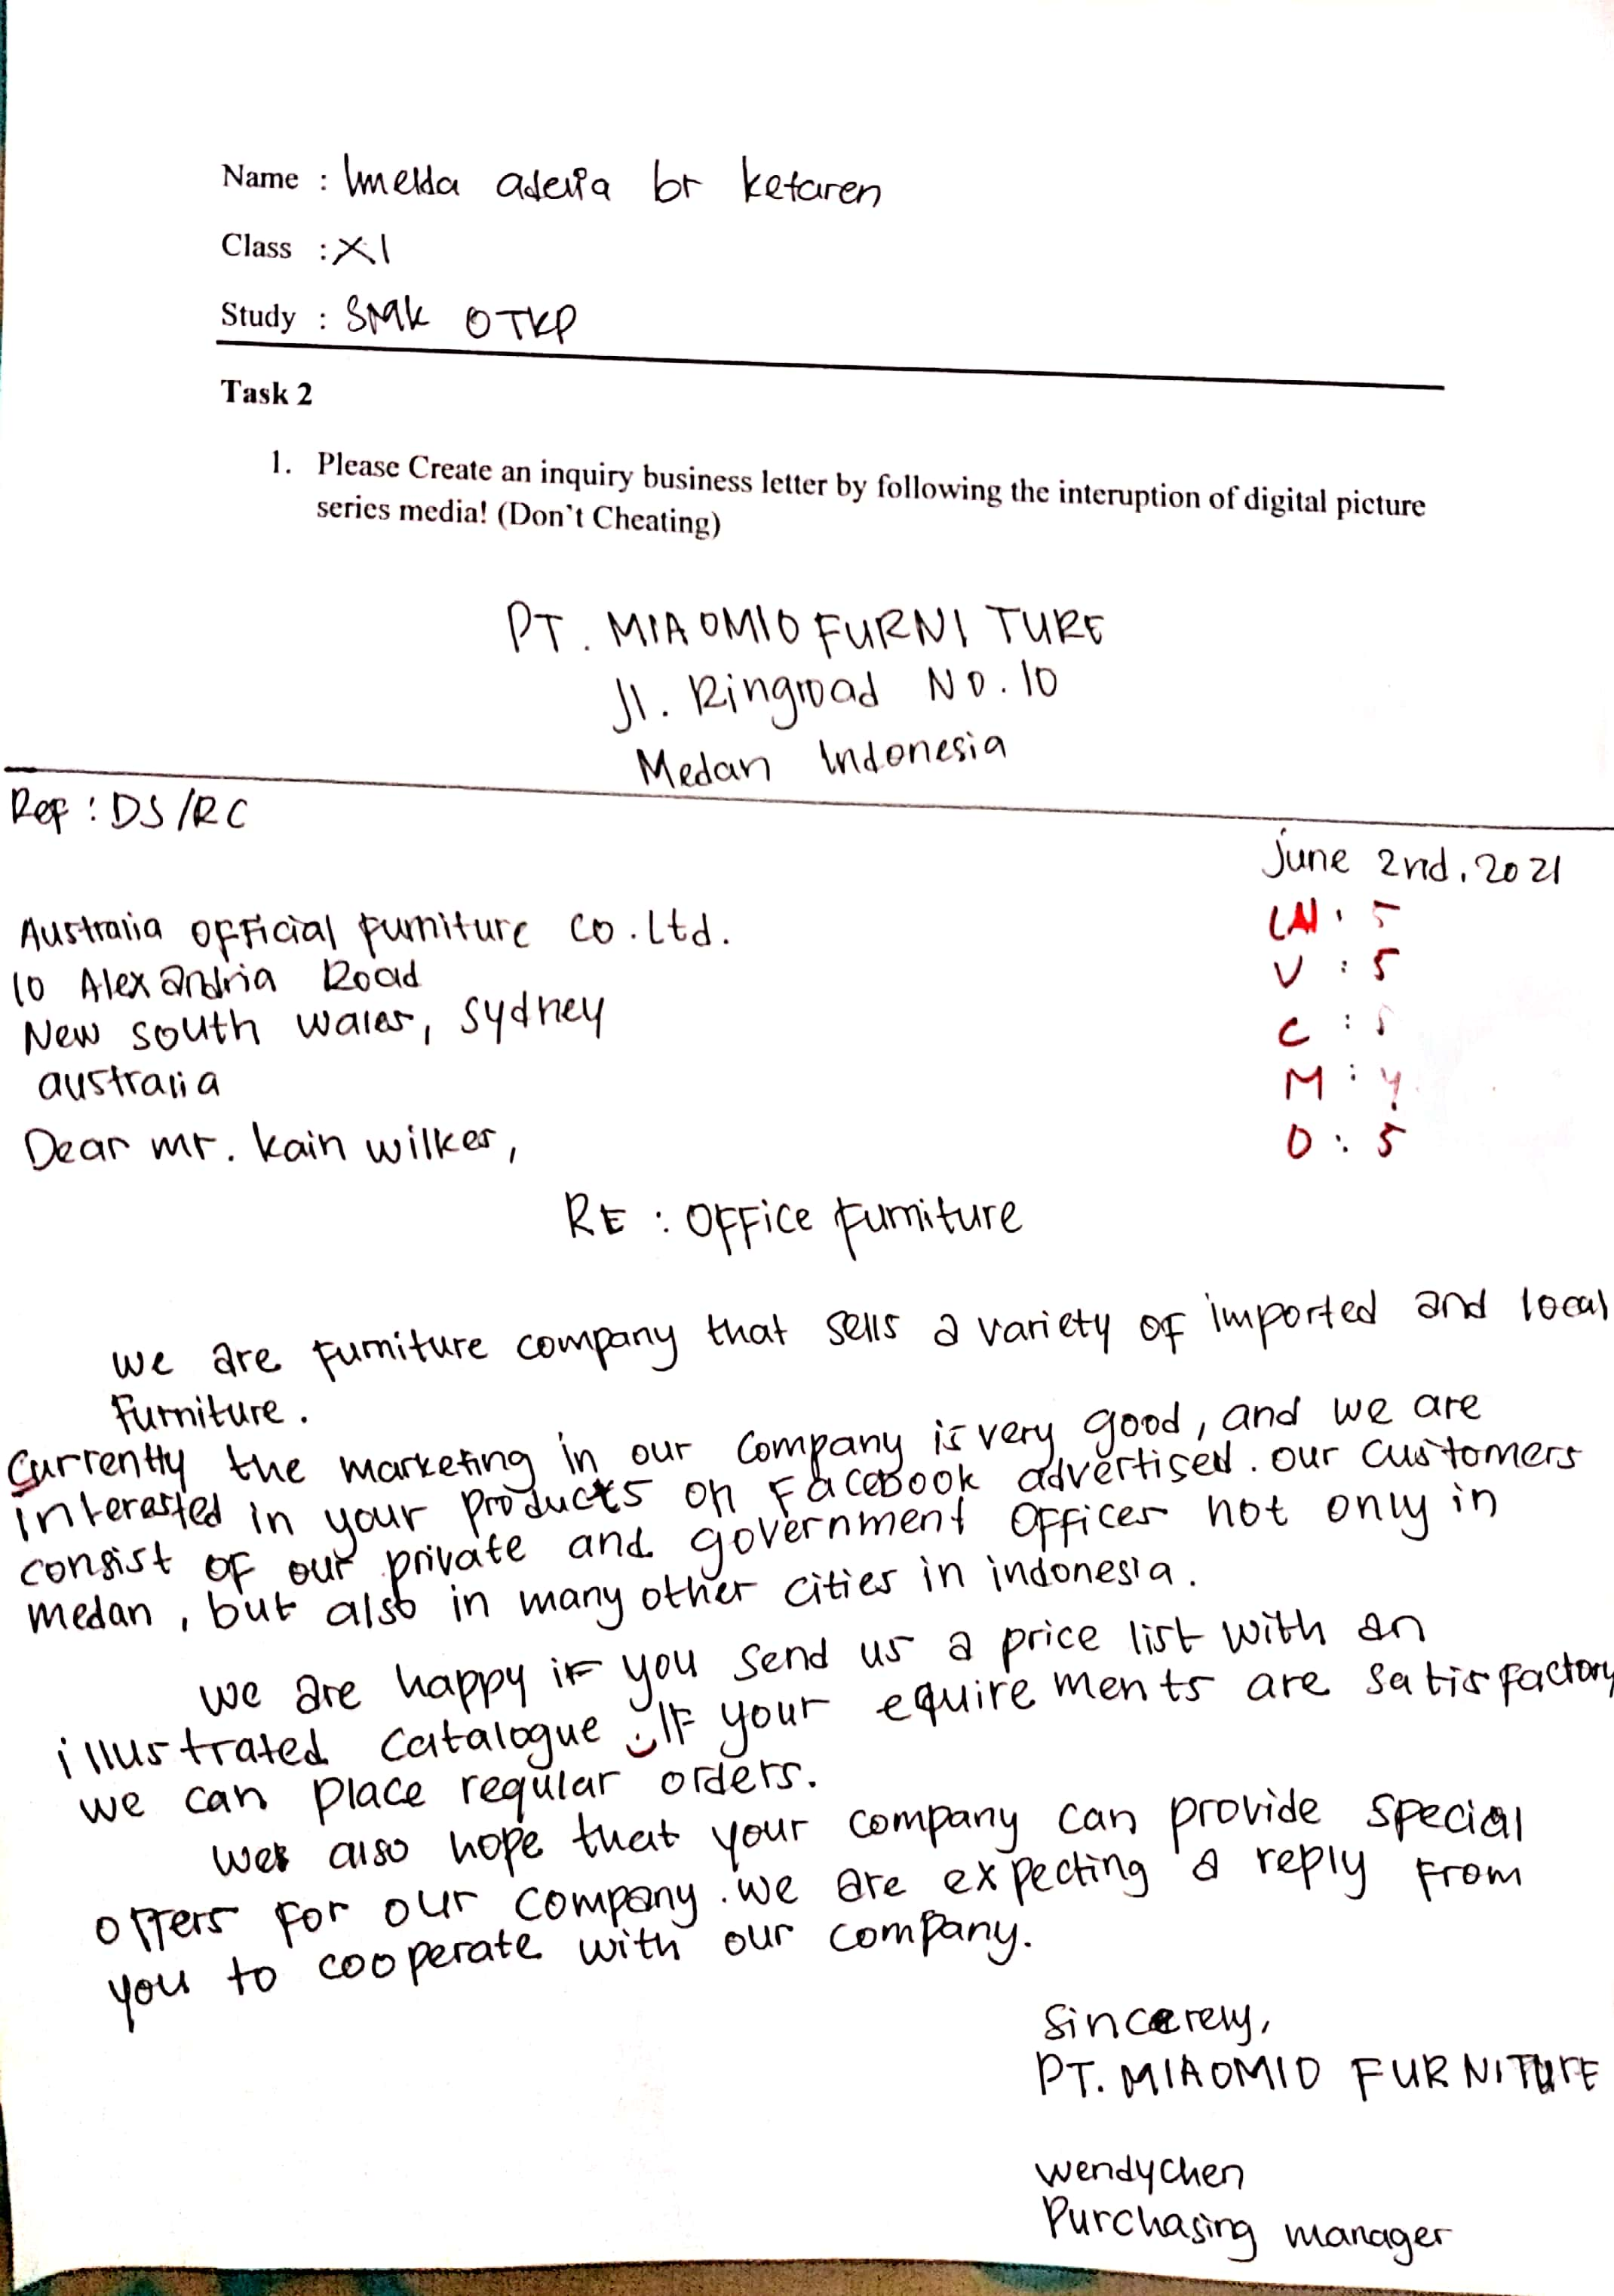 Name : Imelda adelia br ketaren
Class : XI
Study : SMK OTKP
Task 2
1. Please Create an inquiry business letter by following the interuption of digital picture
series media! (Don't Cheating)
PT. MIAOMIO FURNITURE
Jl. Ringroad No. 10
Medan Indonesia
Ref : DS/RC
june 2nd, 2021
Australia official furniture co. Ltd.
10 Alexandria Road
New south wales, sydney
australia
LN : 5
V : 5
C : 5
M : 4
O : 5
Dear mr. kain wilkes,
RE : Office furniture
we are furniture company that sells a variety of imported and local
furniture.
Currently the marketing in our company is very good, and we are
interested in your products on Facebook advertised. our customers
consist of our private and government offices not only in
medan, but also in many other cities in indonesia.
we are happy if you send us a price list with an
illustrated catalogue. If your equirements are satisfactory
we can place regular orders.
we also hope that your company can provide special
offers for our company. we are expecting a reply from
you to cooperate with our company.
sincerely,
PT. MIAOMIO FURNITURE
wendychen
Purchasing manager